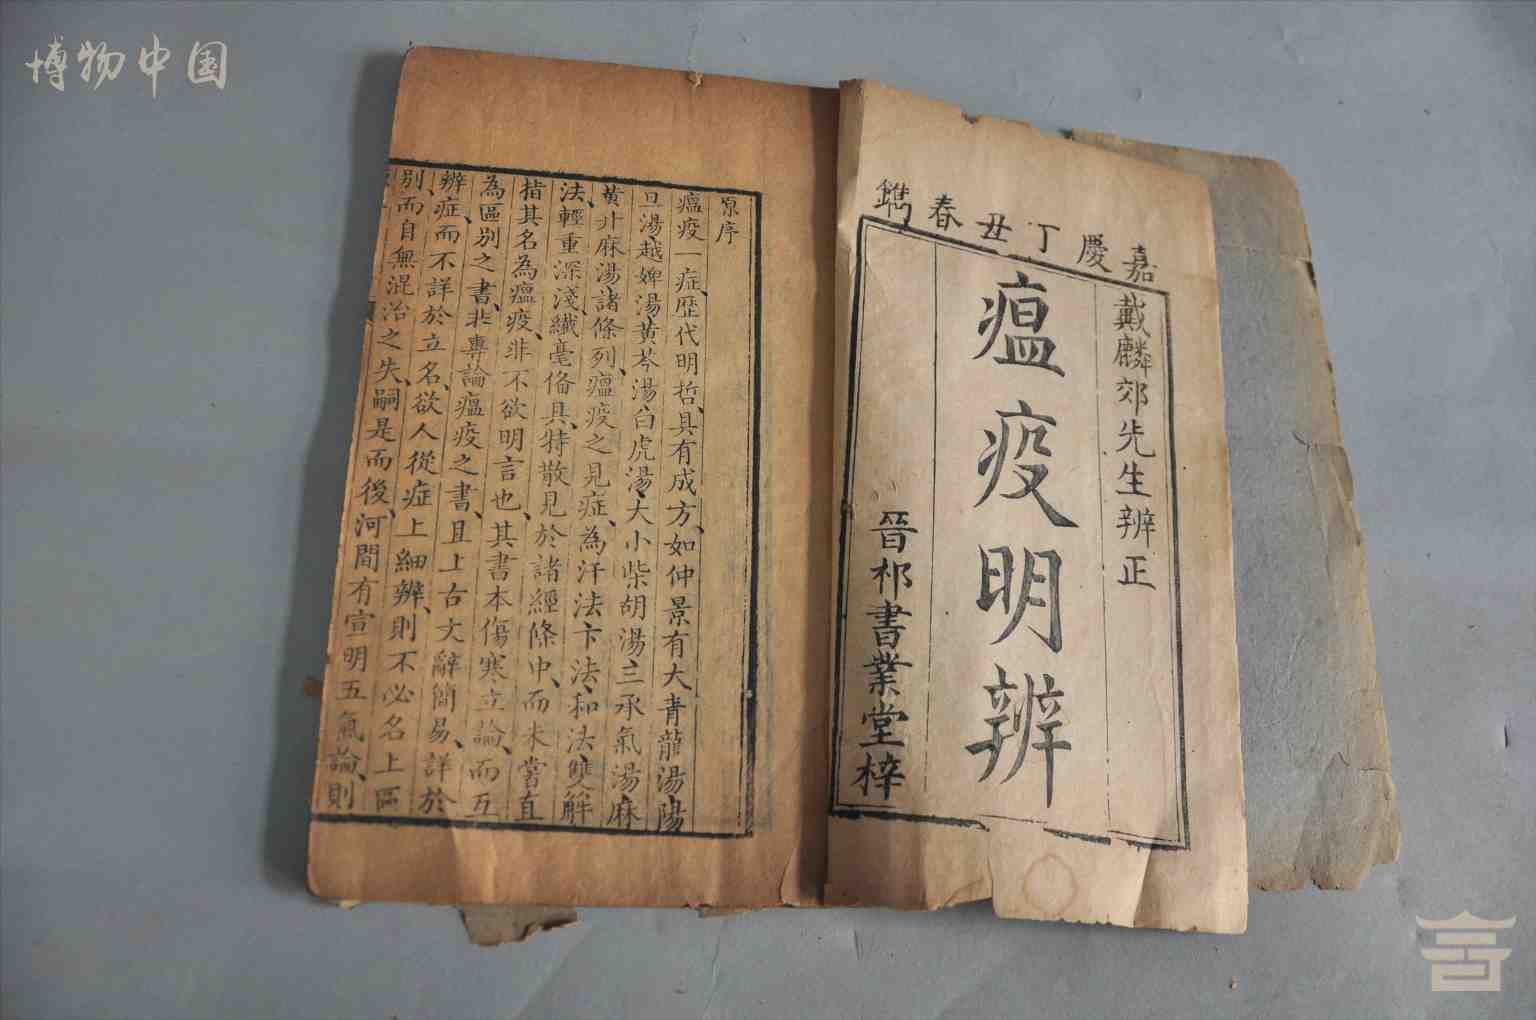 博物中国
嘉慶丁丑春鐫
戴麟郊先生辨正
瘟疫明辨
晉祁書業堂梓
原序
瘟疫一症、歷代明哲、具有成方、如仲景有大青龍湯陽
旦湯越婢湯黄芩湯白虎湯大小柴胡湯三承氣湯麻
黄升麻湯諸條、列瘟疫之見症、為汗法卞法和法雙解
法、輕重深淺、纎毫俻具、特散見於諸經條中、而未嘗直
指其名為瘟疫、非不欲明言也、其書本傷寒立論、而互
為區别之書、非專論瘟疫之書、且上古文辭簡易、詳於
辨症、而不詳於立名、欲人從症上細辨、則不必名上區
别、而自無混治之失、嗣是而後、河間有宣明五氣論、則